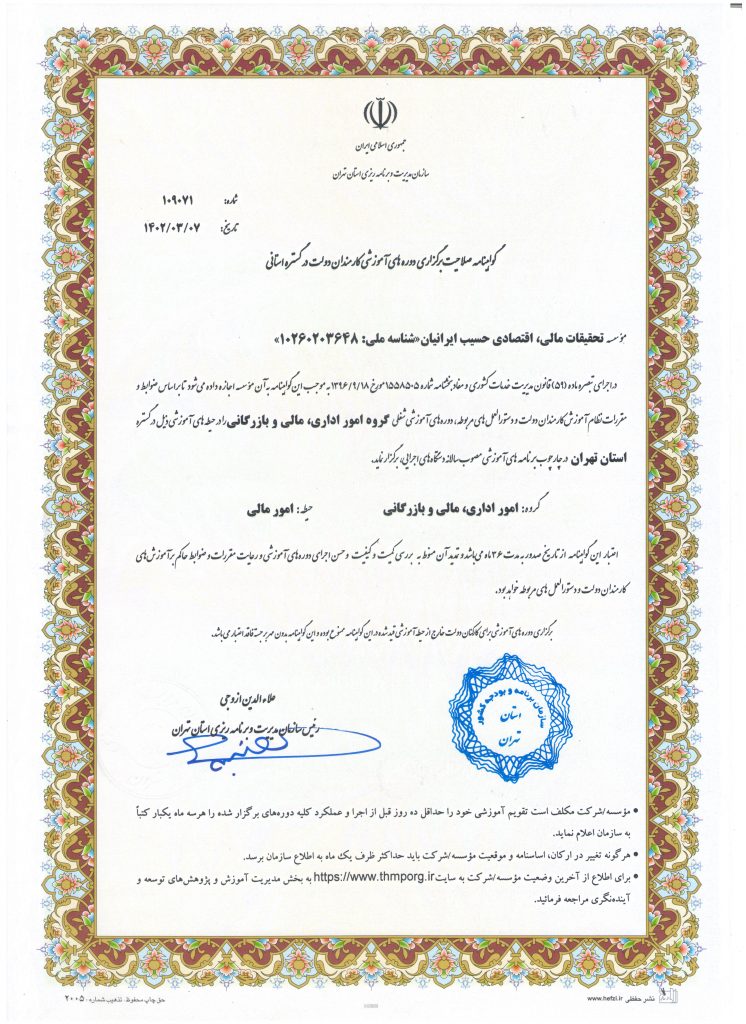 جمهوری اسلامی ایران
سازمان مدیریت و برنامه ریزی استان تهران
شماره: ۱۰۹۰۷۱
تاریخ: ۱۴۰۲/۰۳/۰۷
گواهینامه صلاحیت برگزاری دوره های آموزشی کارمندان دولت در گستره استانی
مؤسسه تحقیقات مالی، اقتصادی حسیب ایرانیان«شناسه ملی: ۱۰۲۶۰۲۰۳۶۴۸»
در اجرای تبصره ماده (۵۹) قانون مدیریت خدمات کشوری و مفاد بخشنامه شماره ۱۵۵۸۵۰۵ مورخ ۱۳۹۶/۹/۱۸ به موجب این گواهینامه به آن مؤسسه اجازه داده می شود تا بر اساس ضوابط و
مقررات نظام آموزش کارمندان دولت و دستورالعمل های مربوطه، دوره های آموزشی شغلی گروه امور اداری، مالی و بازرگانی را در حیطه های آموزشی ذیل در گستره
استان تهران در چارچوب برنامه های آموزشی مصوب سالانه دستگاه های اجرایی، برگزار نماید.
گروه: امور اداری، مالی و بازرگانی حیطه: امور مالی
اعتبار این گواهینامه از تاریخ صدور به مدت ۳۶ ماه می باشد و تمدید آن منوط به بررسی کمیت و کیفیت و حسن اجرای دوره های آموزشی و رعایت مقررات و ضوابط حاکم بر آموزش های
کارمندان دولت و دستورالعمل های مربوطه خواهد بود.
برگزاری دوره های آموزشی برای کارکنان دولت خارج از حیطه آموزشی قید شده در این گواهینامه ممنوع بوده و این گواهینامه بدون مهر برجسته فاقد اعتبار می باشد.
علاءالدین ازوجی
رئیس سازمان مدیریت و برنامه ریزی استان تهران
سازمان برنامه و بودجه کشور
استان
تهران
• مؤسسه/شرکت مکلف است تقویم آموزشی خود را حداقل ده روز قبل از اجرا و عملکرد کلیه دوره‌های برگزار شده را هرسه ماه یکبار کتباً
به سازمان اعلام نماید.
• هرگونه تغییر در ارکان، اساسنامه و موقعیت مؤسسه/شرکت باید حداکثر ظرف یک ماه به اطلاع سازمان برسد.
• برای اطلاع از آخرین وضعیت مؤسسه/شرکت به سایت https://www.thmporg.ir به بخش مدیریت آموزش و پژوهش‌های توسعه و
آینده‌نگری مراجعه فرمائید.
نشر حفظی www.hefzi.ir
حق چاپ محفوظ - تذهیب شماره: ۲۰۰۵